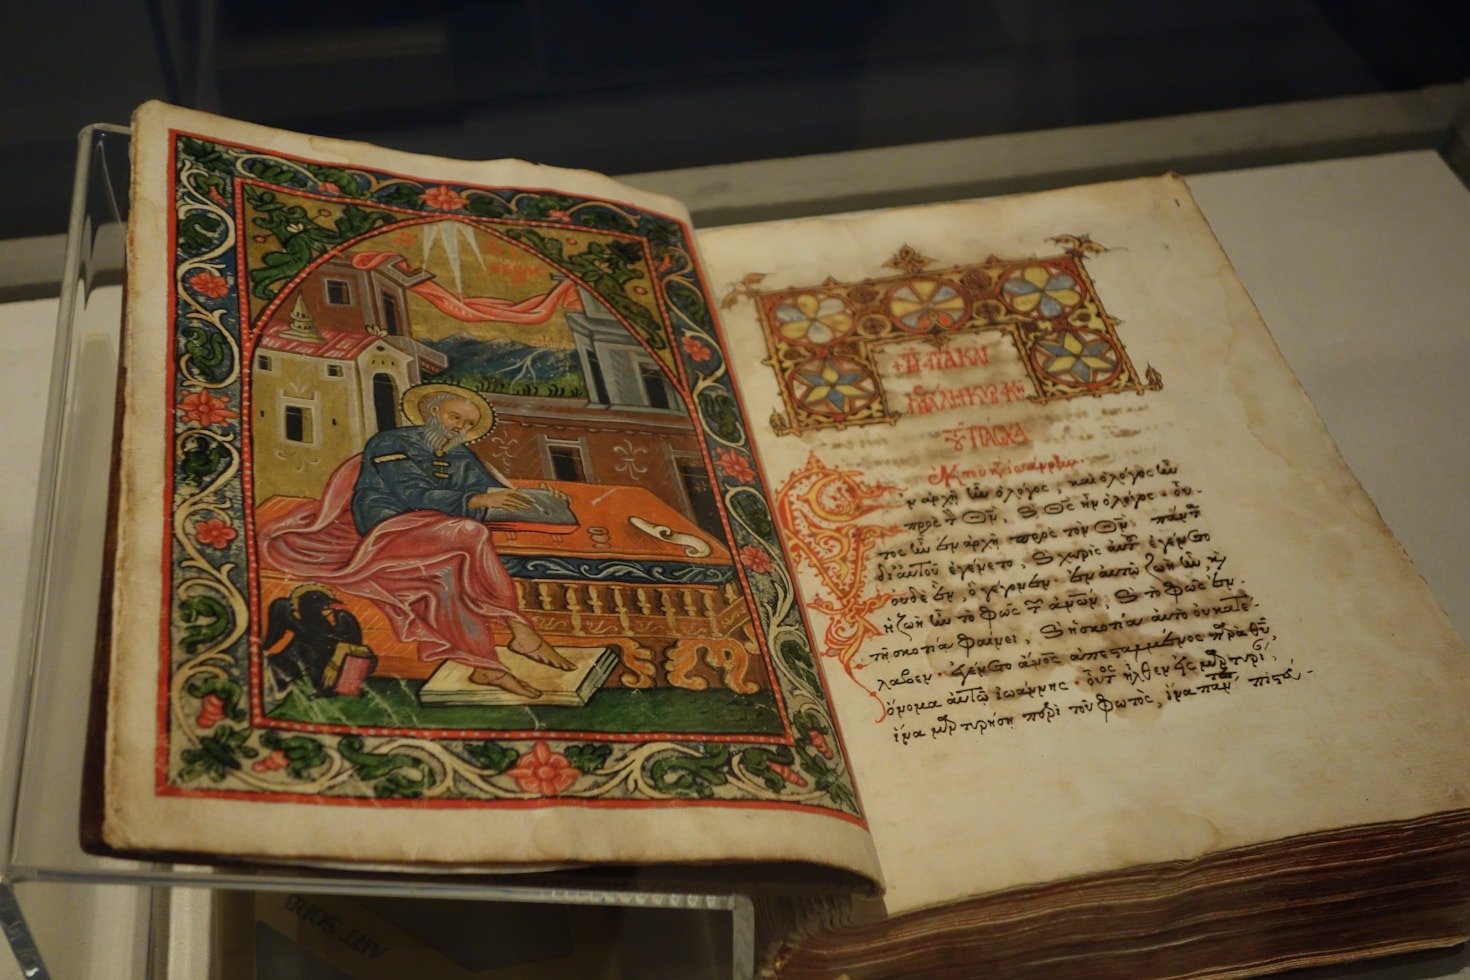 +ΤΗ ἉΓΙΑ ΚΑΙ
ΜΕΓΑΛΗ ΚΥΡΙΑΚΗ
τοῦ ΠΑΣΧΑ
ἐκ τοῦ κατὰ ἰωάννην.
Ἐν ἀρχῇ ἦν ὁ λόγος, καὶ ὁ λόγος ἦν
πρὸς τὸν Θν, καὶ Θς ἦν ὁ λόγος· οὗ-
τος ἦν ἐν ἀρχῇ πρὸς τὸν Θν· πάντα
δι αὐτοῦ ἐγένετο, καὶ χωρὶς αὐτοῦ ἐγένετο
οὐδὲ ἕν, ὃ γέγονεν. ἐν αὐτῷ ζωὴ ἦν, καὶ
ἡ ζωὴ ἦν τὸ φῶς τῶν ἀνων, καὶ τὸ φῶς ἐν
τῇ σκοτίᾳ φαίνει, καὶ ἡ σκοτία αὐτὸ οὐ κατέ-
λαβεν. ἐγένετο ἄνος ἀπεσταλμένος παρὰ θυ,
ὄνομα αὐτῷ ἰωάννης. οὗτος ἦλθεν εἰς μαρτυρίαν,
ἵνα μαρτυρήσῃ περὶ τοῦ φωτὸς, ἵνα πάντες πιστεύ-